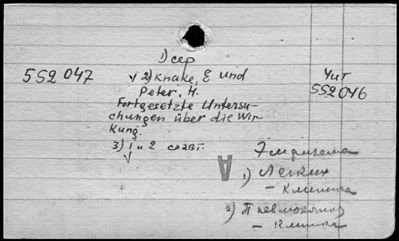 1) сер
552 047
v 2) Knake, E und
Peter, H.
Fortgesetzte Untersu-
chungen über die Wir
Kung.
3) 1 и 2
v
Чит
552 046
Эмфизема
1) Легких
– Клиника
2) Пневмо
– Клиника